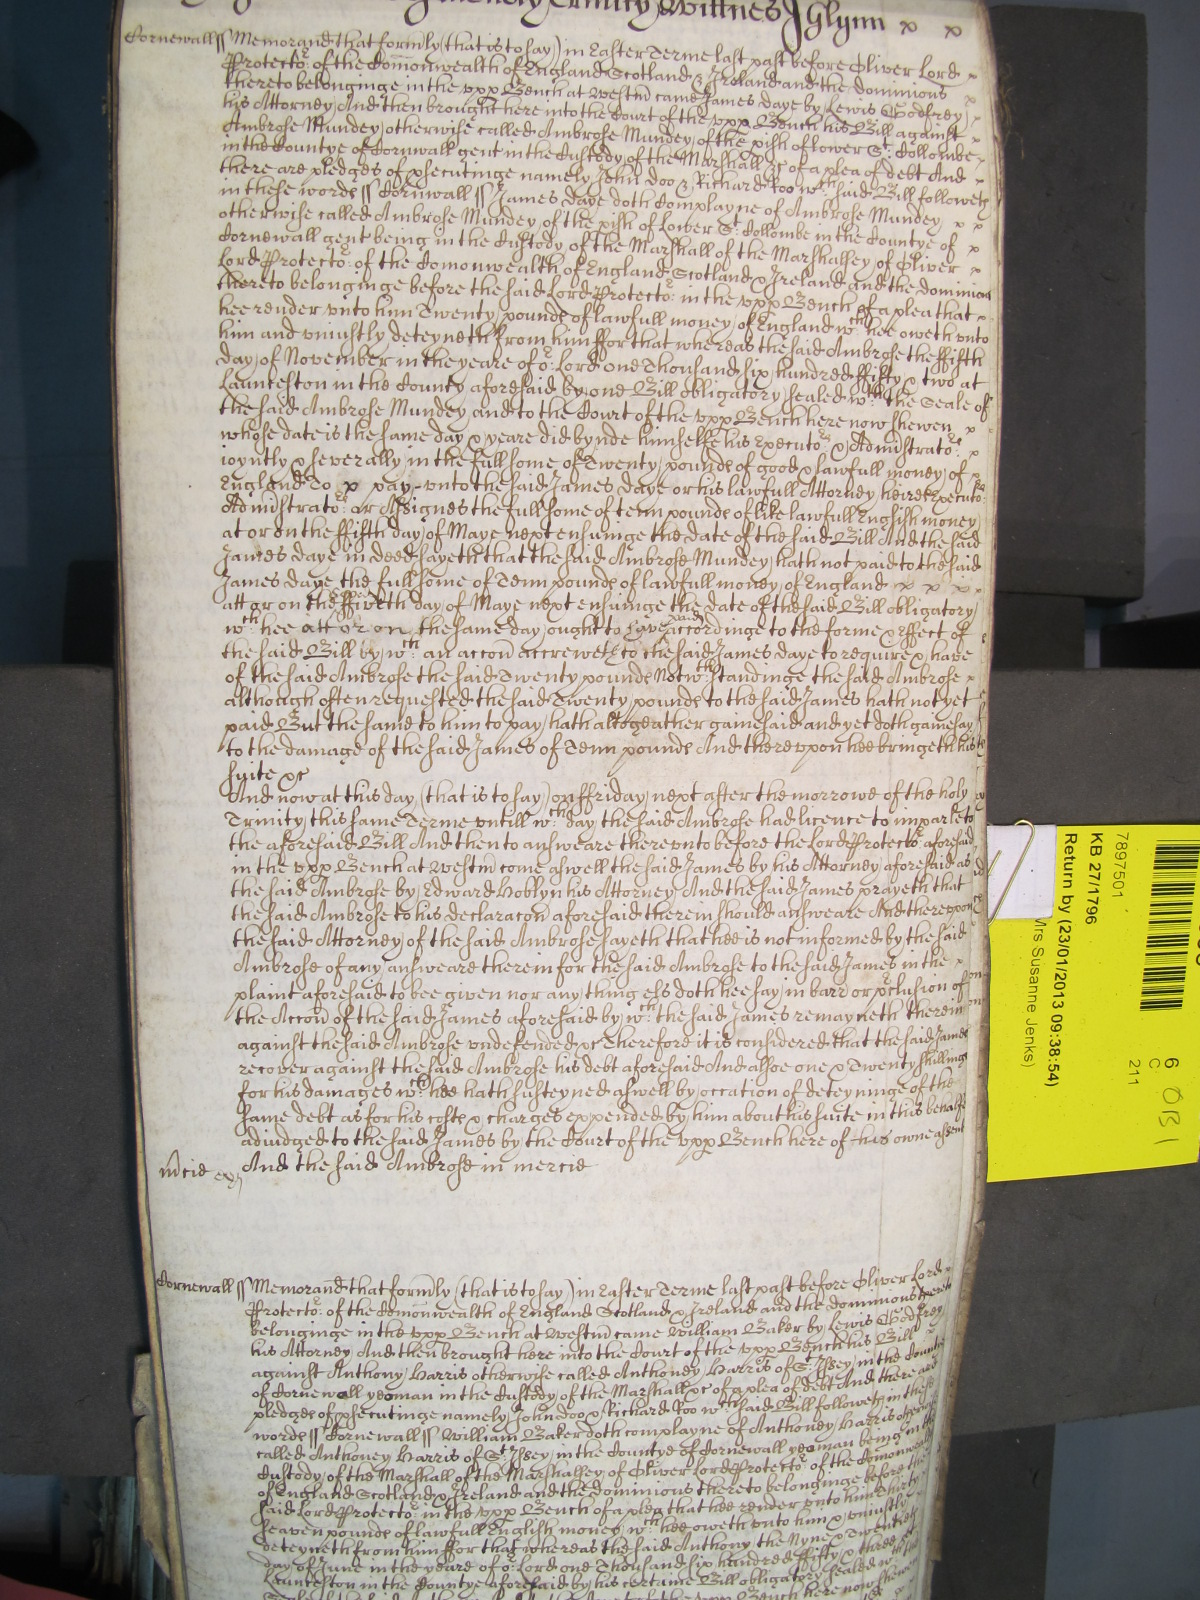 Trinity Wittnes J Glynn x x
Cornewall ss Memorand that formly (that is to say) in Easter Terme last past before Oliver Lord x
Protector of the Comonwealth of England Scotland & Ireland and the dominions x
thereto belonginge in the vpp Bench at Westm came James daye by Lewis Godfrey x
his Attorney And then brought here into the Court of the vpp Bench his Bill against x
Ambrose Mundey otherwise called Ambrose Mundey of the pish of lower St Collombe x
in the Countye of Cornwall gent in the Custody of the Marshall &c of a plea of debt And
there are pledges of psecutinge namely John doo & Richard Roo wch said Bill followeth
in these words ss Cornwall ss James daye doth complayne of Ambrose Mundey x x
otherwise called Ambrose Mundey of the pish of Lower St Collombe in the Countye of x
Cornewall gent being in the Custody of the Marshall of the Marshalsey of Oliver x
Lord Protector of the Comonwealth of England Scotland & Ireland and the dominions
thereto belonginge before the said Lord Protector in the vpp Bench of a plea that x
hee render vnto him Twenty pounds of lawfull money of England wch hee oweth vnto
him and vniustly deteyneth from him ffor that whereas the said Ambrose the ffifth
day of November in the yeare of or Lord one Thousand six hundred ffifty & two at
Launceston in the County aforesaid by one Bill obligatory sealed wth the Seale of
the said Ambrose Mundey and to the Court of the vpp Bench here now shewen x
whose date is the same day & yeare did bynde himselfe his Executors & Administrators x
ioyntly & severally in the full some of Twenty pounds of good & lawfull money of x
England To x pay vnto the said James daye or his lawfull Attorney heires Executors
Administrators or Assignes the full some of tenn pounds of like lawfull English money
at or on the ffifth day of Maye next ensuinge the date of the said Bill And the said
James daye in deed sayeth that the said Ambrose Mundey hath not paid to the said
James daye the full some of Tenn pounds of lawfull money of England x x x x
att or on the ffifth day of Maye next ensuinge the date of the said Bill obligatory
wch hee att or on the same day ought to have paid accordinge to the forme & effect of
the said Bill by wch an accon accreweth to the said James daye to require & have
of the said Ambrose the said Twenty pounds Notwthstandinge the said Ambrose x
although often requested the said Twenty pounds to the said James hath not yet
paid But the same to him to pay hath altogeather gainesaid and yet doth gainesay
to the damage of the said James of Tenn pounds And therevpon hee bringeth his
suite &c
And now at this day (that is to say) on ffriday next after the morrowe of the holy
Trinity this same Terme vntill wch day the said Ambrose had licence to imparle to
the aforesaid Bill And then to answeare therevnto before the Lord Protector aforesaid
in the vpp Bench at Westm come aswell the said James by his Attorney aforesaid as
the said Ambrose by Edward Hoblyn his Attorney And the said James prayeth that
the said Ambrose to his declaracon aforesaid therein should answeare And therevpon
the said Attorney of the said Ambrose sayeth that hee is not informed by the said
Ambrose of any answeare therein for the said Ambrose to the said James in the x
plaint aforesaid to bee given nor any thing els doth hee say in barr or pclusion of
the Accon of the said James aforesaid by wch the said James remayneth therein
against the said Ambrose vndefended &c Therefore it is considered that the said James
recover against the said Ambrose his debt aforesaid And alsoe one & Twenty shillings
for his damages wch hee hath susteyned aswell by occation of deteyninge of the
same debt as for his costs & charges expended by him about his suite in this behalf
adiudged to the said James by the Court of the vpp Bench here of his owne assent
And the said Ambrose in mercie
mcie
Cornewall ss Memorand that formly (that is to say) in Easter Terme last past before Oliver Lord
Protector of the Comonwealth of England Scotland & Ireland and the dominions thereto
belonginge in the vpp Bench at Westm came William Baker by Lewis Godfrey
his Attorney And then brought here into the Court of the vpp Bench his Bill
against Anthony Harris otherwise called Anthoney Harris of St Issey in the County
of Cornewall yeoman in the Custody of the Marshall &c of a plea of debt And there are
pledges of psecutinge namely John doo & Richard Roo wch said Bill followeth in these
words ss Cornewall ss William Baker doth complayne of Anthoney Harris otherwise
called Anthoney Harris of St Issey in the Countye of Cornewall yeoman being in the
Custody of the Marshall of the Marshalsey of Oliver Lord Protector of the Comonwealth
of England Scotland & Ireland and the dominions thereto belonginge before the
said Lord Protector in the vpp Bench of a plea that hee render vnto him thirty
seaven pounds of lawfull English money wch hee oweth vnto him & vniustly
deteyneth from him ffor that whereas the said Anthony the Nyne & Twentieth
day of June in the yeare of or Lord one Thousand six hundred ffifty & three at
Launceston in the Countye aforesaid by his certaine Bill obligatory sealed wth the
Bench here now shewen
7897501
KB 27/1796
Return by (23/01/2013 09:38:54)
Mrs Susanne Jenks)
6
C
211
OB 1